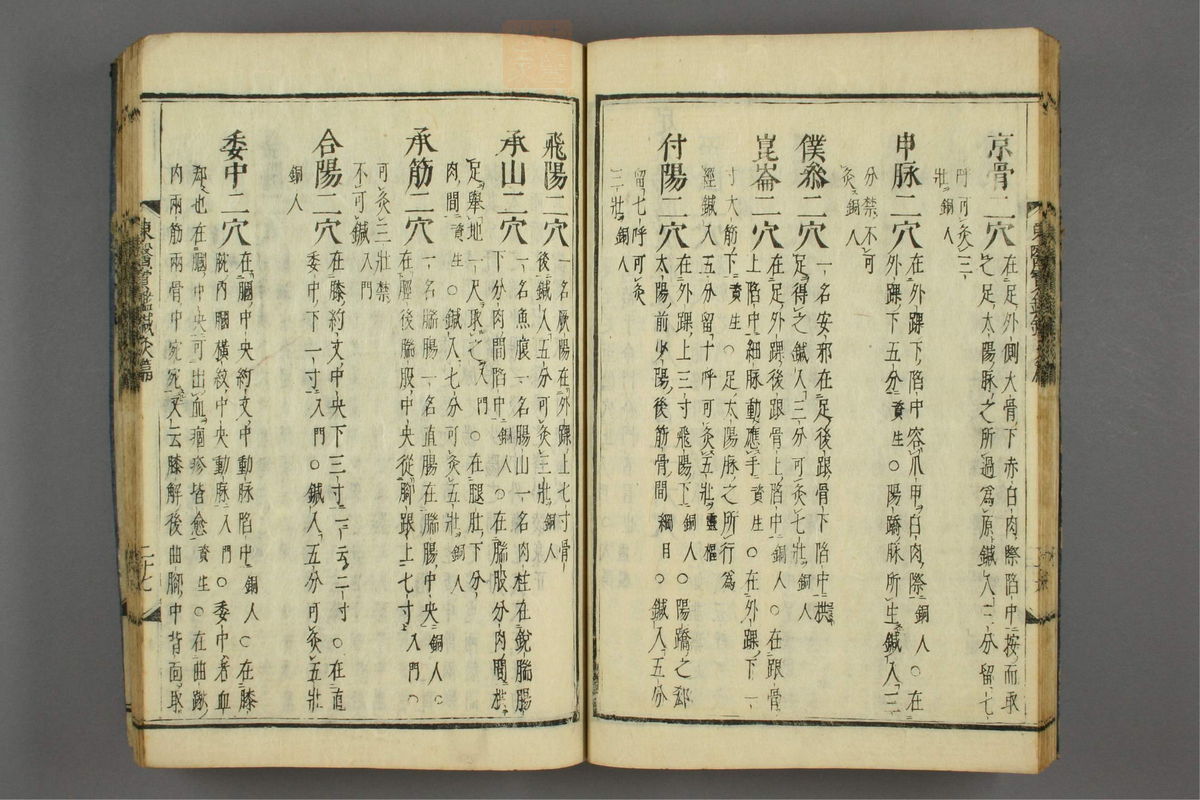 京骨二穴在足外側大骨下赤白肉際陷中按而取
之足太陽脉之所過爲原鍼入三分留七
呼可灸三
壯銅人
申脉二穴在外踝下陷中容爪甲白肉際銅人○在
外踝下五分資生○陽蹻脉所生鍼入三
分禁不可
灸銅人
僕叅二穴一名安邪在足後跟骨下陷中拱
足得之鍼入三分可灸七壯銅人○在跟骨
崑崙二穴在足外踝後跟骨上陷中銅人○在外踝下一
上陷中細脉動應手資生○足太陽脉之所行爲
寸大筋下資生○
經鍼入五分留十呼可灸五壯靈樞
付陽二穴在外踝上三寸飛陽下銅人○陽蹻之郄
太陽前少陽後筋骨間綱目○鍼入五分
留七呼可灸
三壯銅人
飛陽二穴一名厥陽在外踝上七寸骨
後鍼入五分可灸三壯銅人
承山二穴一名魚腹一名腸山一名肉柱在銳腨腸
下分肉間陷中銅人○在腨股分肉間拱
足擧地一尺取之入門○在腿肚下分
肉間資生○鍼入七分可灸五壯銅人
承筋二穴一名腨腸一名直腸在腨腸中央銅人○
在脛後腨股中央從脚跟上七寸入門○
可灸三壯禁
不可鍼入門
合陽二穴在膝約文中央下三寸一云二寸○在直
委中下一寸入門○鍼入五分可灸五壯
銅人
委中二穴在膕中央約文中動脉陷中銅人○在膝
腕內膕橫紋中央動脉入門○委中者血
郄也在膕中央可出血痼疹皆愈資生○在曲䐐
內兩筋兩骨中宛宛又云膝解後曲脚中背面取
東醫寶鑑鍼灸篇
二十七